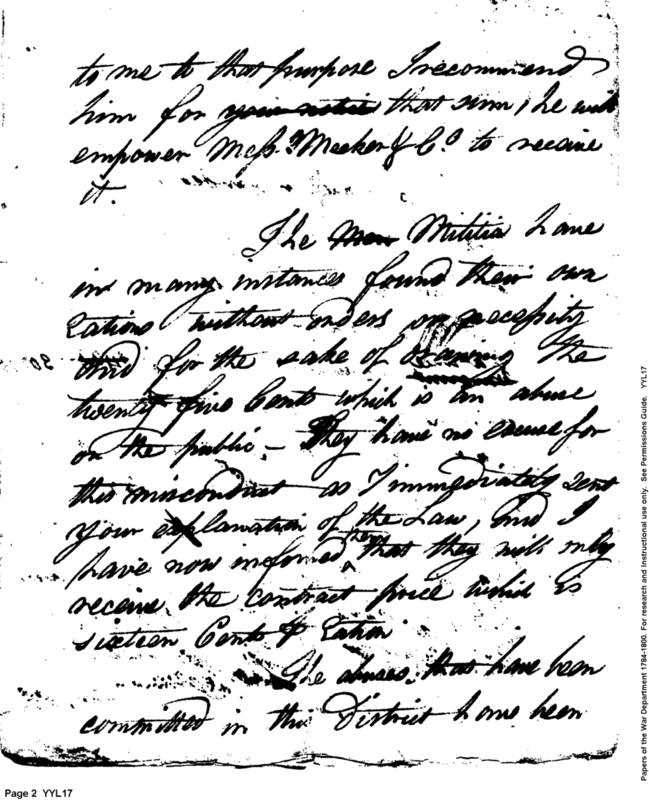 to me to that purpose I recommend
him for your notice that sum, he will
empower Mess.rs Meeker & Co. to receive
it.
The Men Militia have
in many instances found their own
Rations without orders or necessity
and for the sake of drawing the
twenty five Cents which is an abuse
on the public – They have no excuse for
this misconduct as I immediately sent
your explanation of the Law, and I
have now informed them that they will only
receive the contract price which is
sixteen Cents ⅌ Ration
The abuses, that have been
committed in this District have been
Page 2 YYL17
Papers of the War Department 1784-1800. For research and instructional use only. See Permissions Guide. YYL17